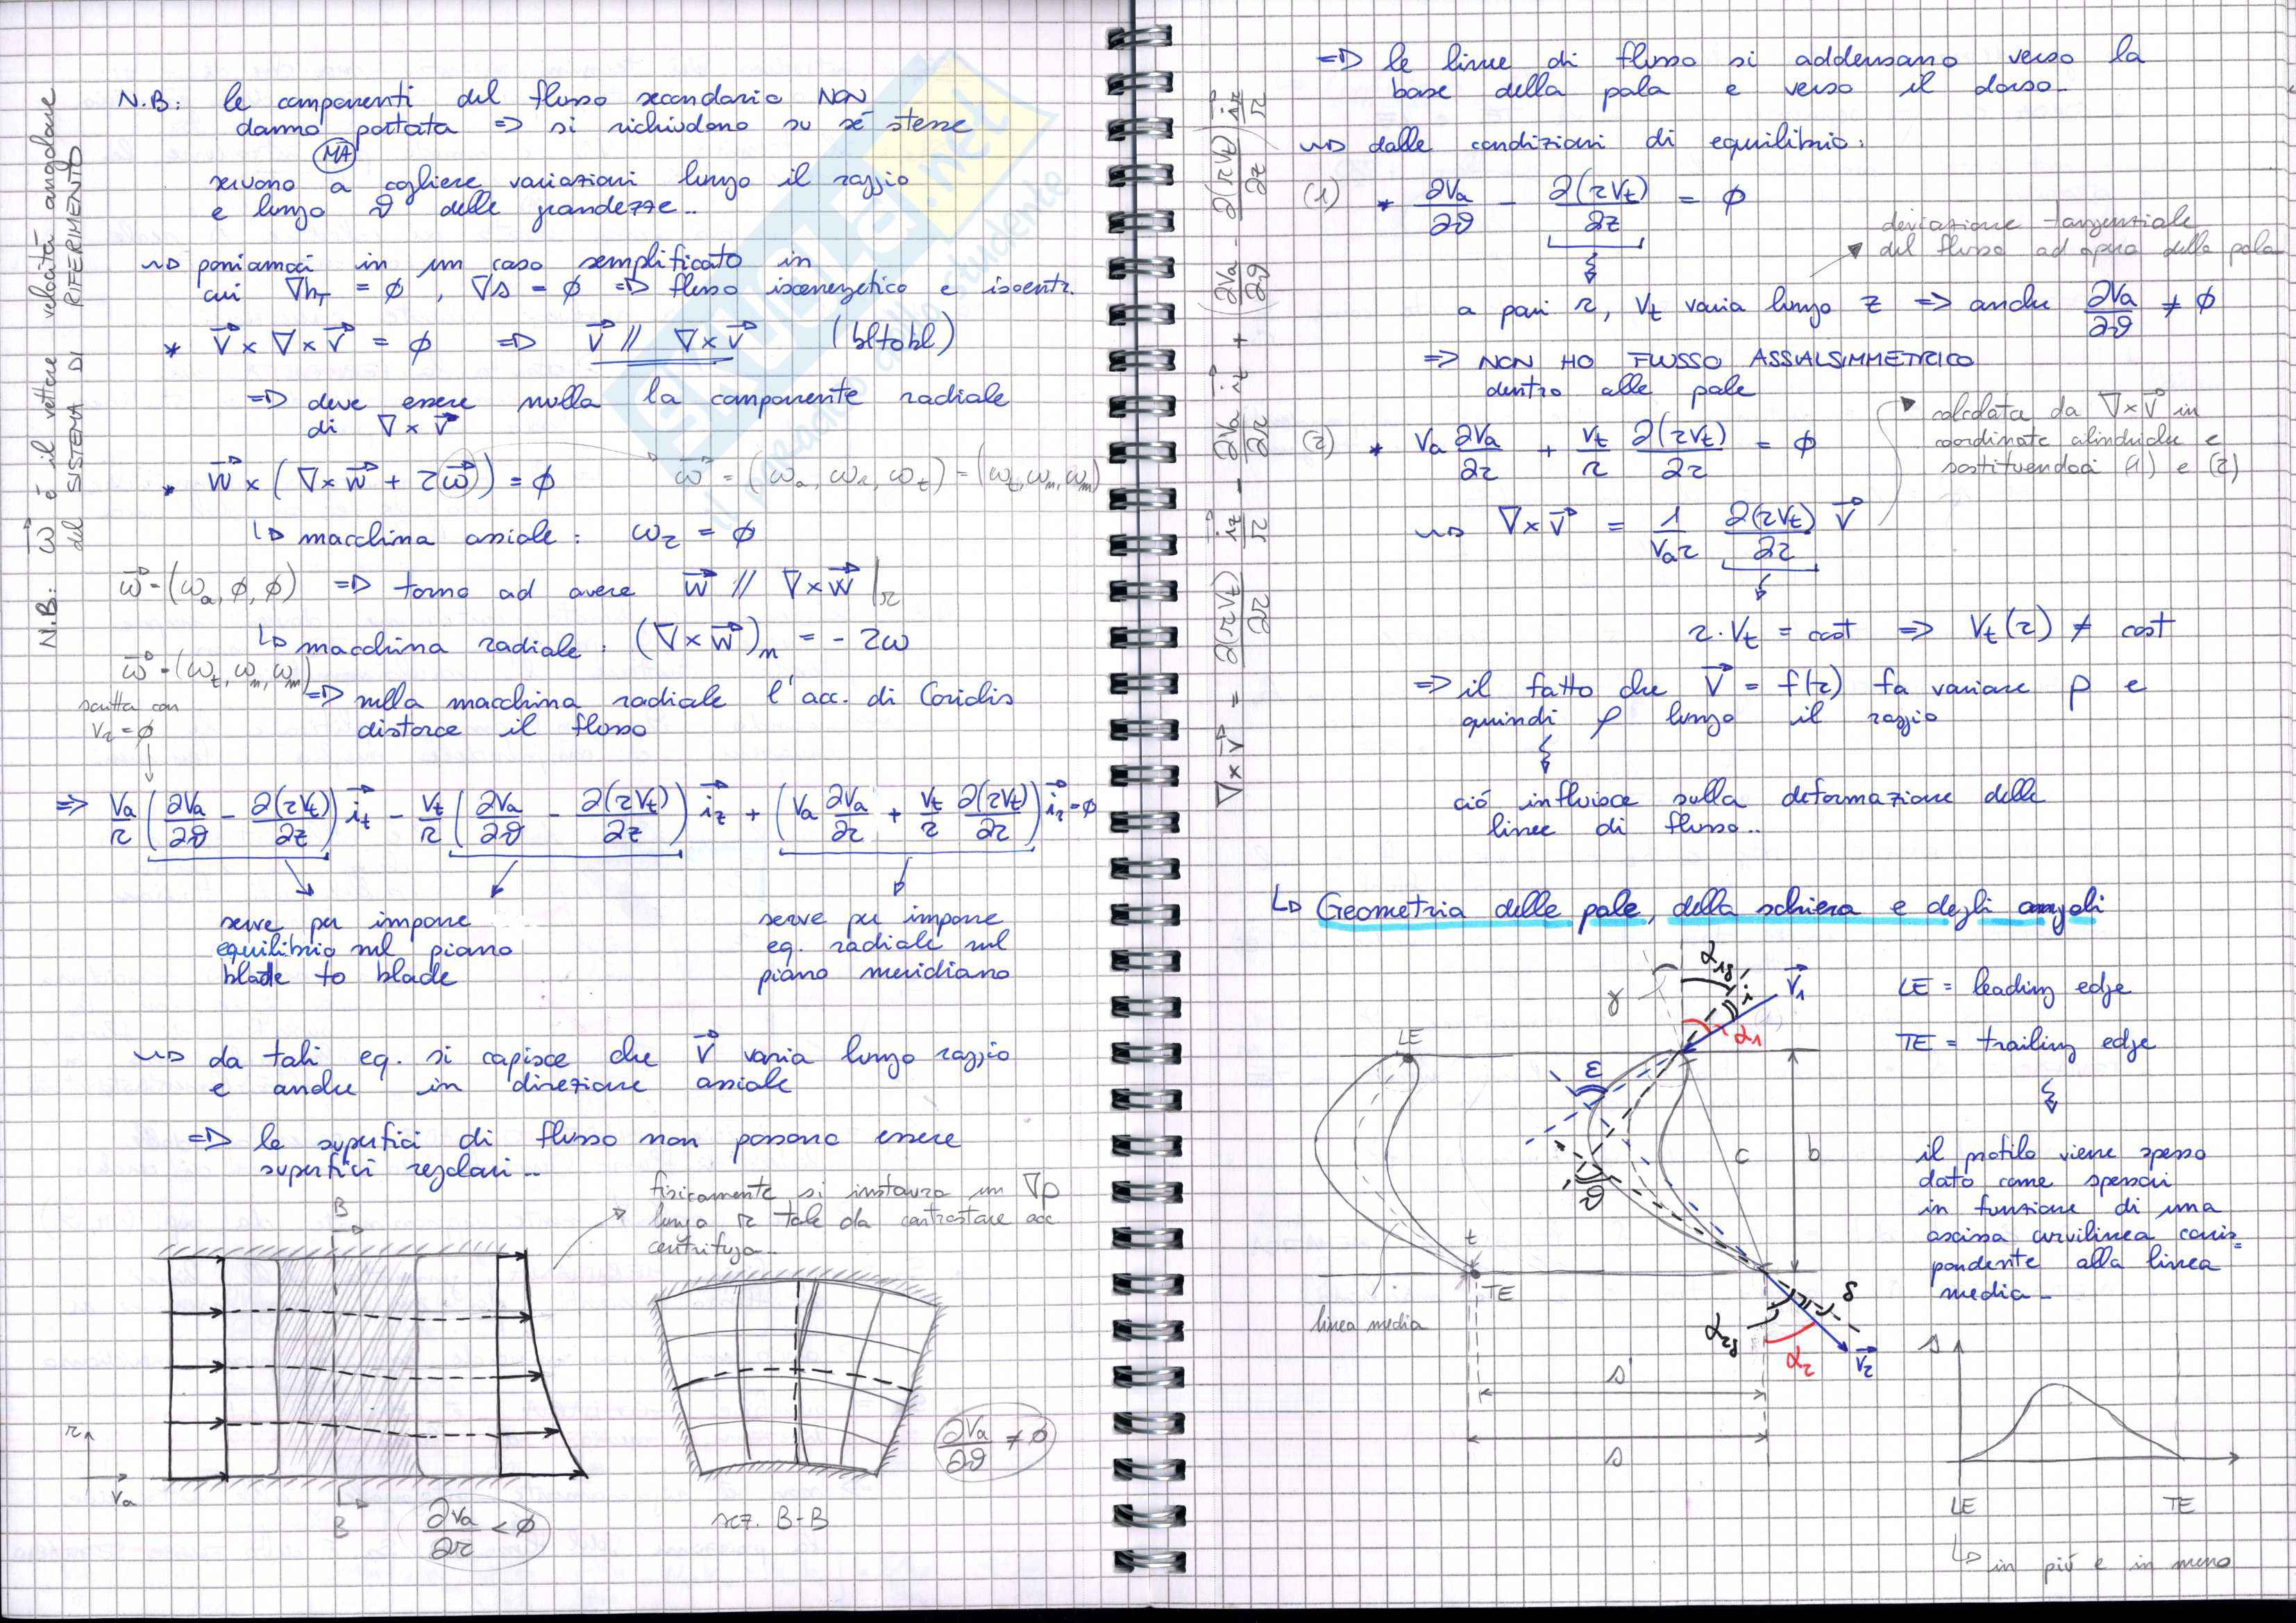 N.B: le componenti del flusso secondario NON
danno portata => si richiudono su sé stesse
MA
servono a cogliere variazioni lungo il raggio
e lungo ϑ delle grandezze..
~> poniamoci in un caso semplificato in
cui ∇h_T = ϕ , ∇s = ϕ => flusso isoenergetico e isoentr.
* V⃗ × ∇ × V⃗ = ϕ => V⃗ // ∇ × V⃗ (bltobl)
=> deve essere nulla la componente radiale
di ∇ × V⃗
* W⃗ × (∇ × W⃗ + 2ω⃗) = ϕ
ω⃗ = (ω_a, ω_r, ω_t) = (ω_t, ω_n, ω_m)
↳ macchina assiale: ω_r = ϕ
ω⃗ = (ω_a, ϕ, ϕ) => torno ad avere W⃗ // ∇ × W⃗ |_r
↳ macchina radiale: (∇ × W⃗)_n = - 2ω
ω⃗ = (ω_t, ω_n, ω_m)
=> nella macchina radiale l'acc. di Coriolis
distorce il flusso
scritta con
V_r = ϕ
=> V_a/r (∂V_a/∂ϑ - ∂(rV_t)/∂z) i⃗_t - V_t/r (∂V_a/∂ϑ - ∂(rV_t)/∂z) i⃗_z + (V_a ∂V_a/∂r + V_t/r ∂(rV_t)/∂r) i⃗_r = ϕ
serve per imporre
equilibrio sul piano
blade to blade
serve per imporre
eq. radiale sul
piano meridiano
~> da tali eq. si capisce che V⃗ varia lungo raggio
e anche in direzione assiale
=> le superfici di flusso non possono essere
superfici regolari..
fisicamente si instaura un ∇p
lungo r tale da contrastare acc
centrifuga..
B
r
V_a
B
∂V_a/∂r < ϕ
sez. B-B
∂V_a/∂ϑ ≠ ϕ
N.B: ω⃗ é il vettore velocitá angolare
del SISTEMA DI RIFERIMENTO
∇ × V⃗ = ∂(rV_t)/∂r i⃗_z/r - ∂V_a/∂r i⃗_t + (∂V_a/∂ϑ - ∂(rV_t)/∂z) i⃗_r/r
=> le linee di flusso si addensano verso la
base della pala e verso il dorso..
~> dalle condizioni di equilibrio:
(1) * ∂V_a/∂ϑ - ∂(rV_t)/∂z = ϕ
deviazione tangenziale
del flusso ad opera della pala
a pari r, V_t varia lungo z => anche ∂V_a/∂ϑ ≠ ϕ
=> NON HO FLUSSO ASSIALSIMMETRICO
dentro alle pale
(2) * V_a ∂V_a/∂r + V_t/r ∂(rV_t)/∂r = ϕ
calcolata da ∇×V⃗ in
coordinate cilindriche e
sostituendoci (1) e (2)
~> ∇ × V⃗ = 1/(V_a r) ∂(rV_t)/∂r V⃗
r · V_t = cost => V_t(r) ≠ cost
=> il fatto che V⃗ = f(r) fa variare p e
quindi ρ lungo il raggio
ció influisce sulla deformazione delle
linee di flusso..
↳ Geometria delle pale, della schiera e degli angoli
LE
γ
α_1g
i
V⃗_1
α_1
ε
ϑ
c
b
t
TE
linea media
δ
α_2g
α_2
V⃗_2
s'
s
LE = leading edge
TE = trailing edge
il profilo viene spesso
dato come spessori
in funzione di una
ascissa curvilinea corris=
pondente alla linea
media..
s
LE TE
↳ in piú e in meno